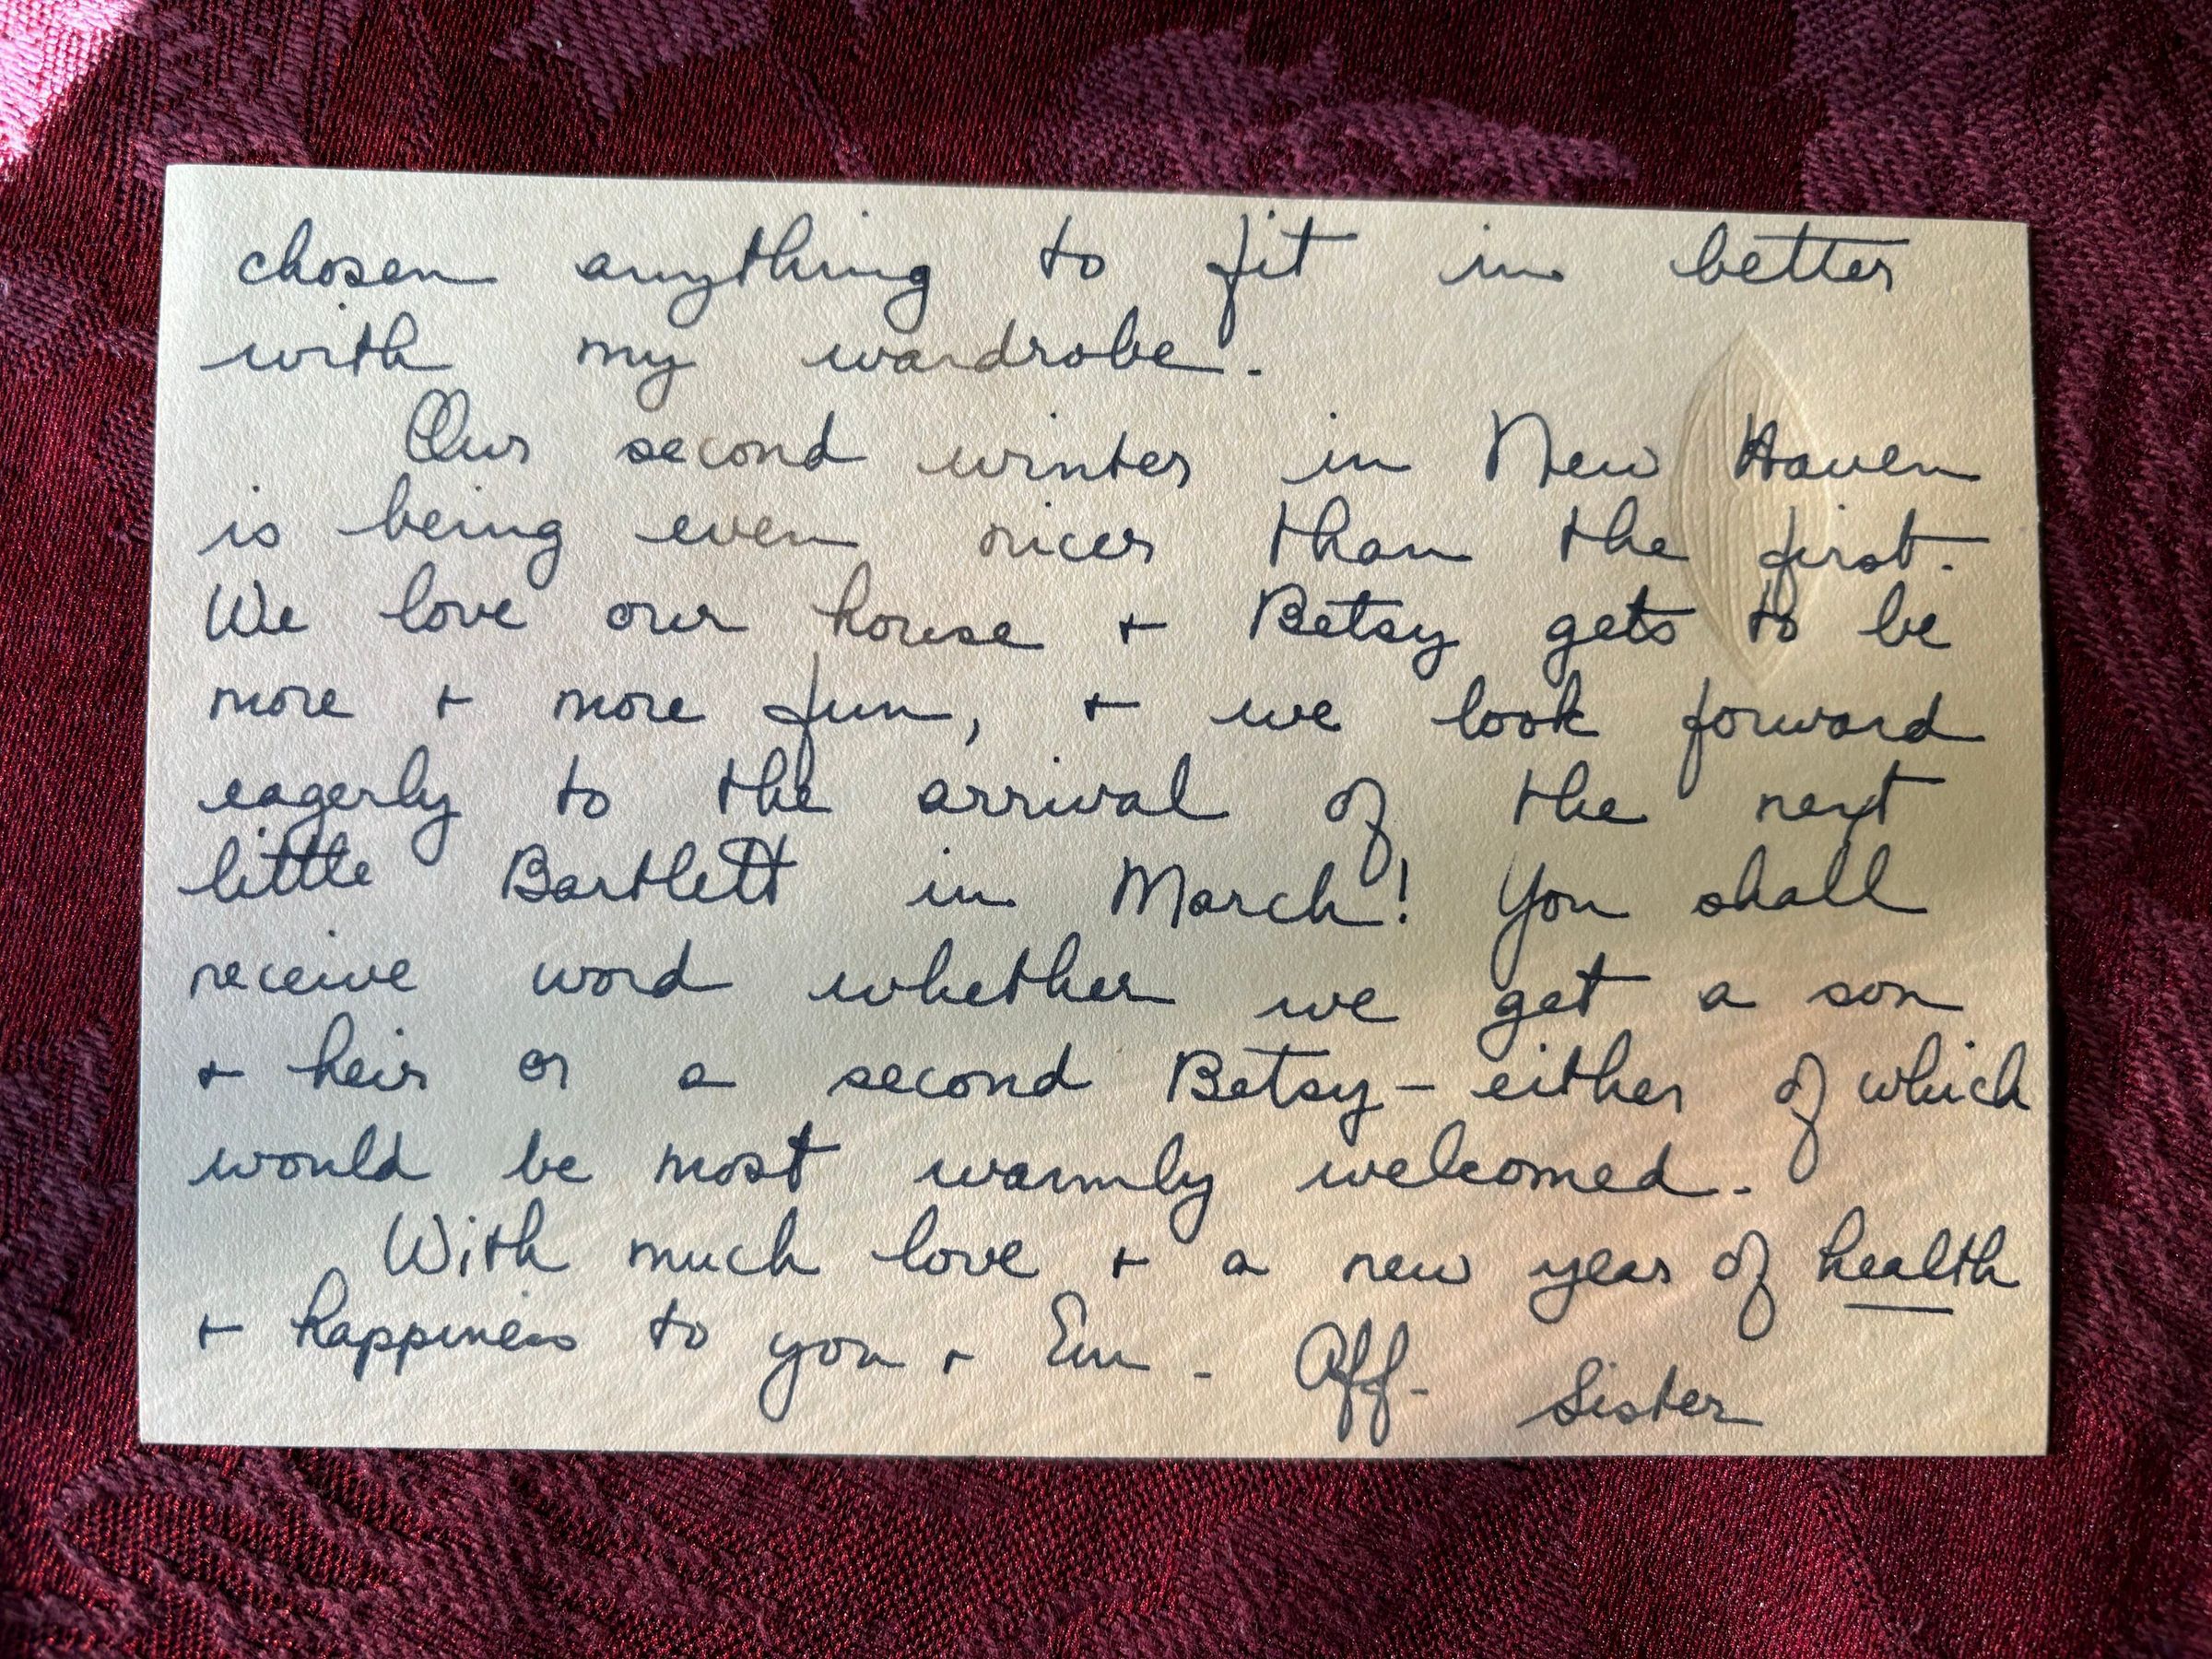 chosen anything to fit in better
with my wardrobe.
Our second winter in New Haven
is being even nicer than the first.
We love our house + Betsy gets to be
more + more fun, + we look forward
eagerly to the arrival of the next
little Bartlett in March! You shall
receive word whether we get a son
+ heir or a second Betsy - either of which
would be most warmly welcomed.
With much love + a new year of health
+ happiness to you + Em - Aff. Sister